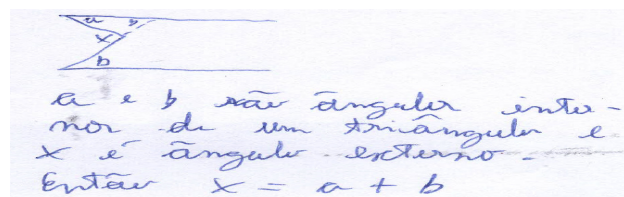 a b
x
b
a e b são ângulos inter-
nos de um triângulo e
x é ângulo externo.
Então x = a + b